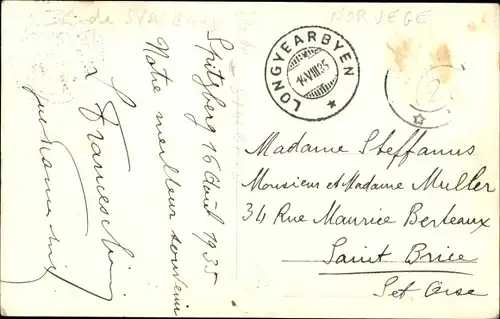 NORVEGE
LONGYEARBYEN
14 VIII 35
2
Spitzberg 16 Août 1935
Notre meilleur souvenir
Madame Steffanus
Monsieur et Madame Muller
34 Rue Maurice Berteaux
Saint Brice
Set Oise